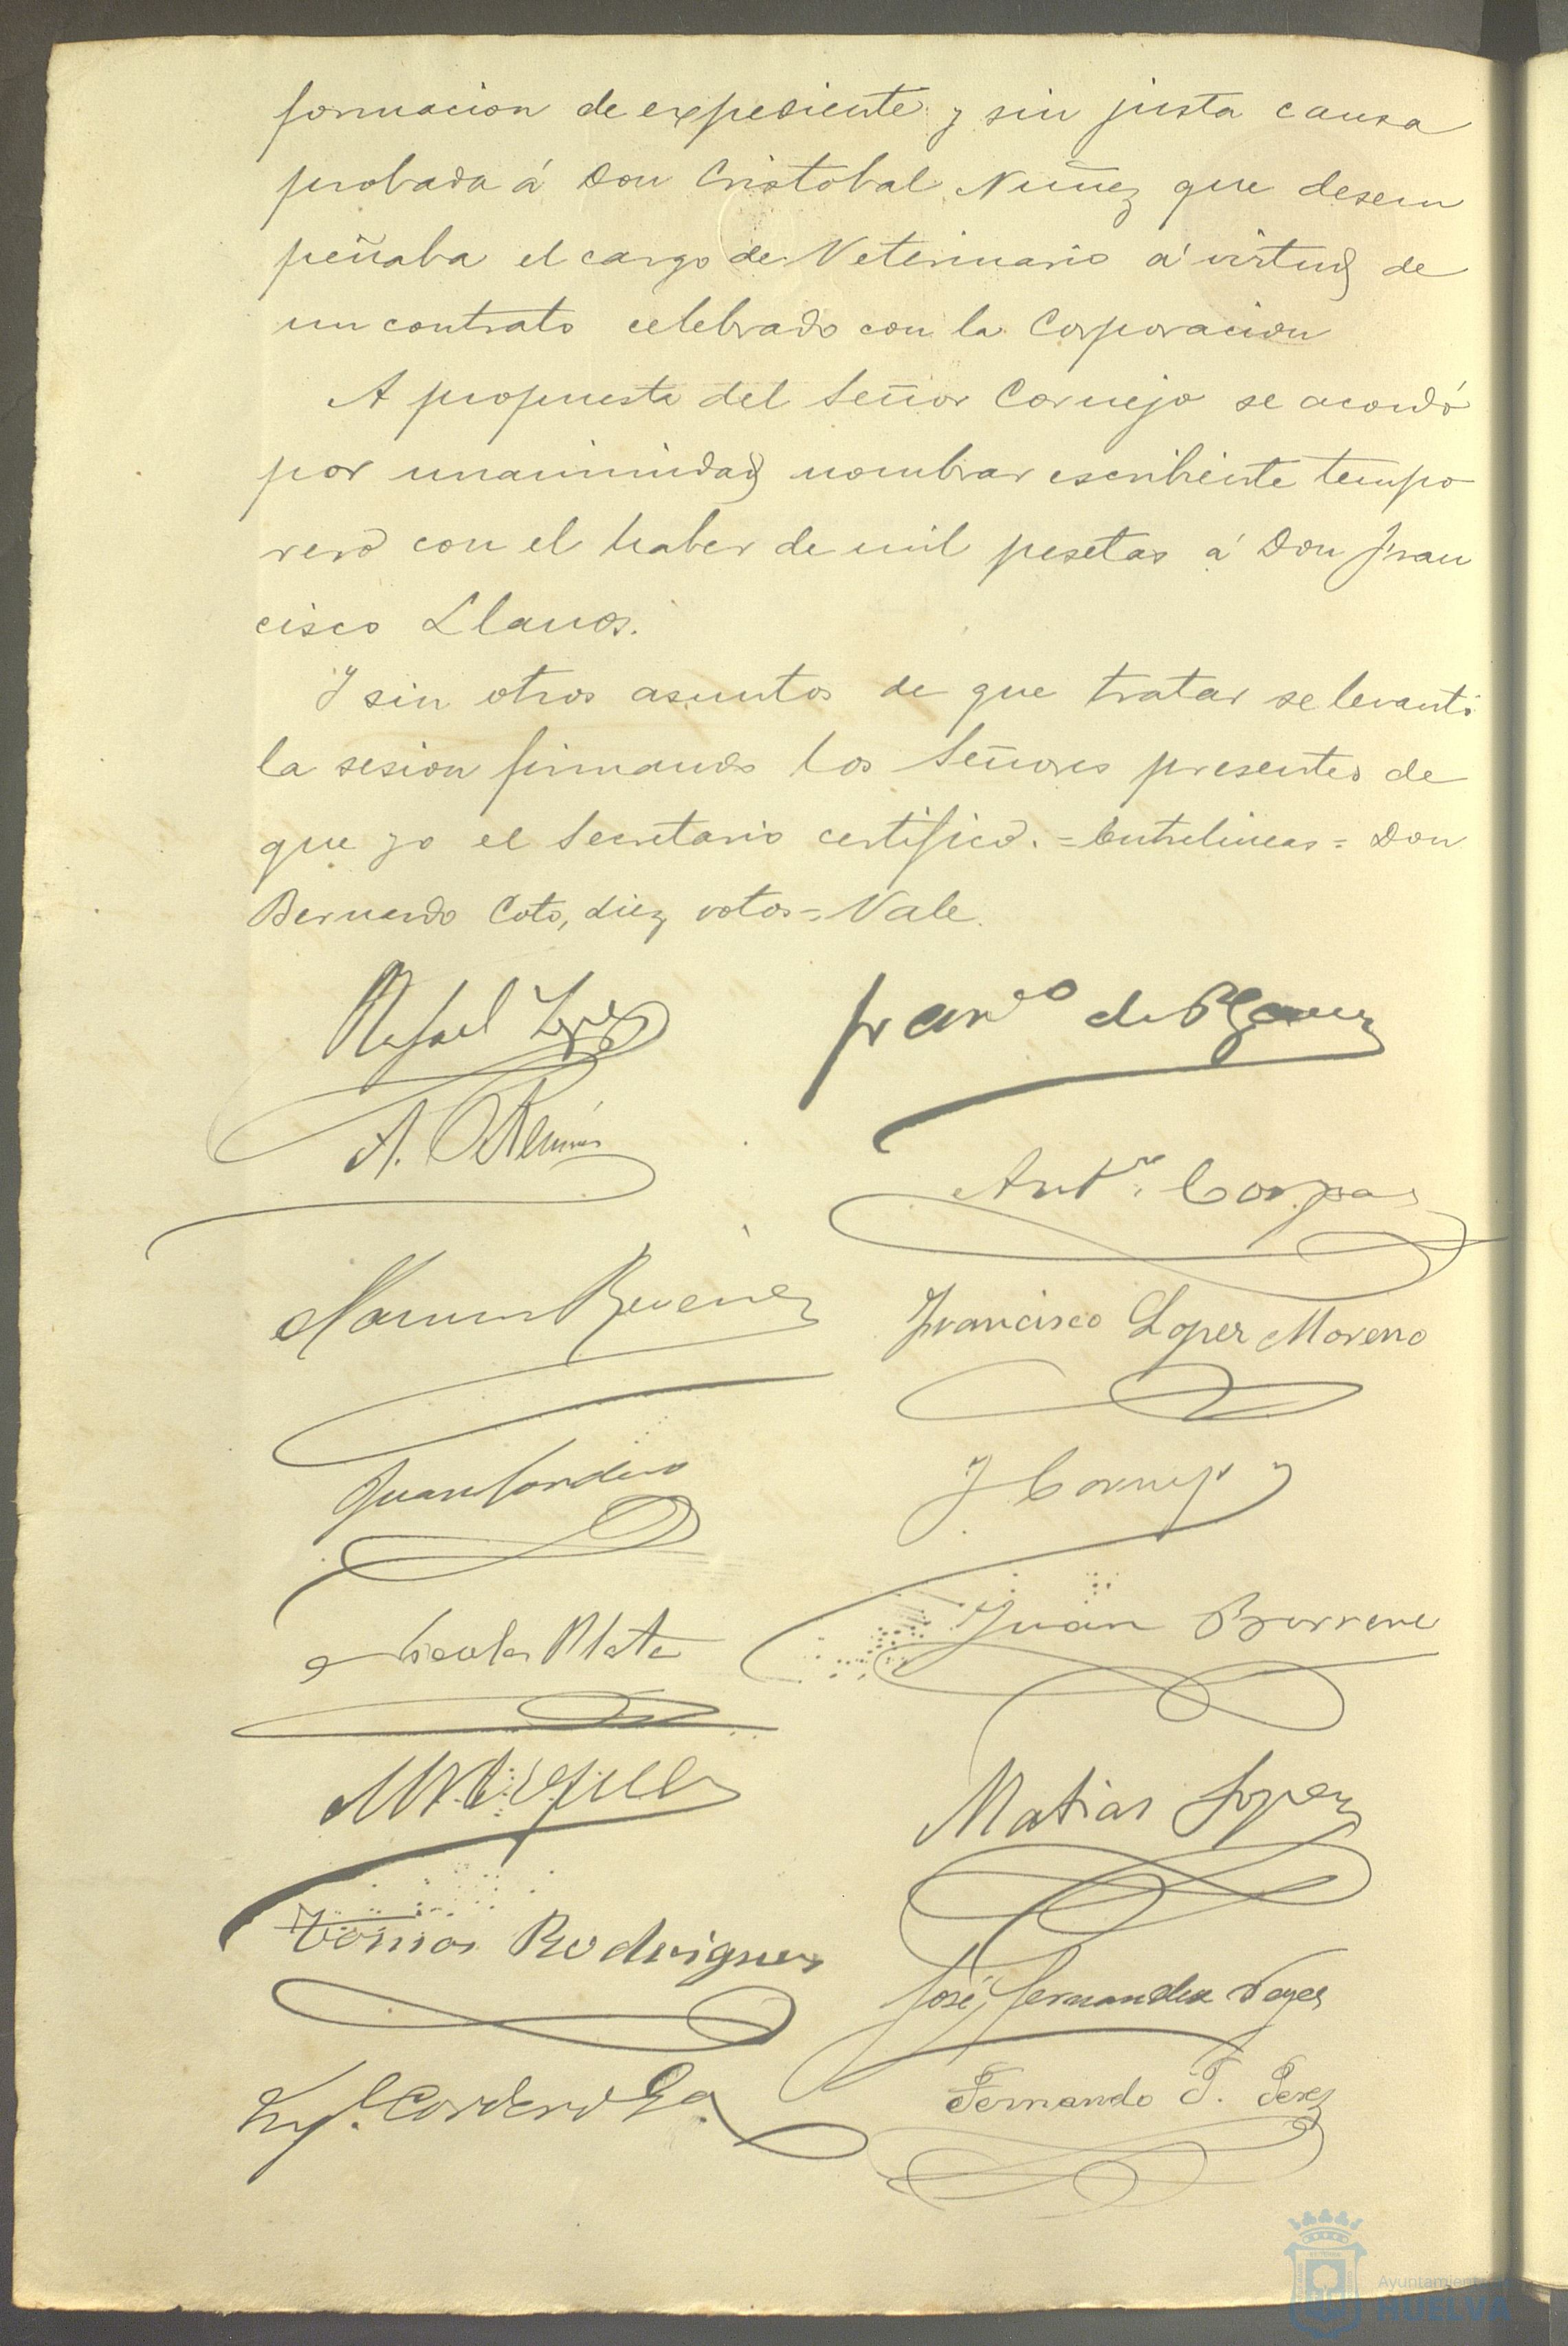 formacion de expediente y sin justa causa
probada á Don Cristobal Nuñez que desem
peñaba el cargo de Veterinario á virtud de
un contrato celebrado con la Corporacion
A propuesta del Señor Cornejo se acordó
por unanimidad nombrar escribiente tempo
rero con el haber de mil pesetas á Don Fran
cisco Llanos.
Y sin otros asuntos de que tratar se levantó
la sesion firmando los Señores presentes de
que yo el Secretario certifico. = Entrelineas = Don
Bernardo Coto, diez votos = Vale.
Rafael Lopez
Fran.co de P.
A.
Ant.o Corpas
Francisco Lopez Moreno
Juan Cordero
J Cornejo
Nicolas Plata
Juan Borrero
Matias Lopez
Tomas Rodriguez
José Fernandez
Cordero
Fernando T. Perez
Ayuntamiento
HUELVA